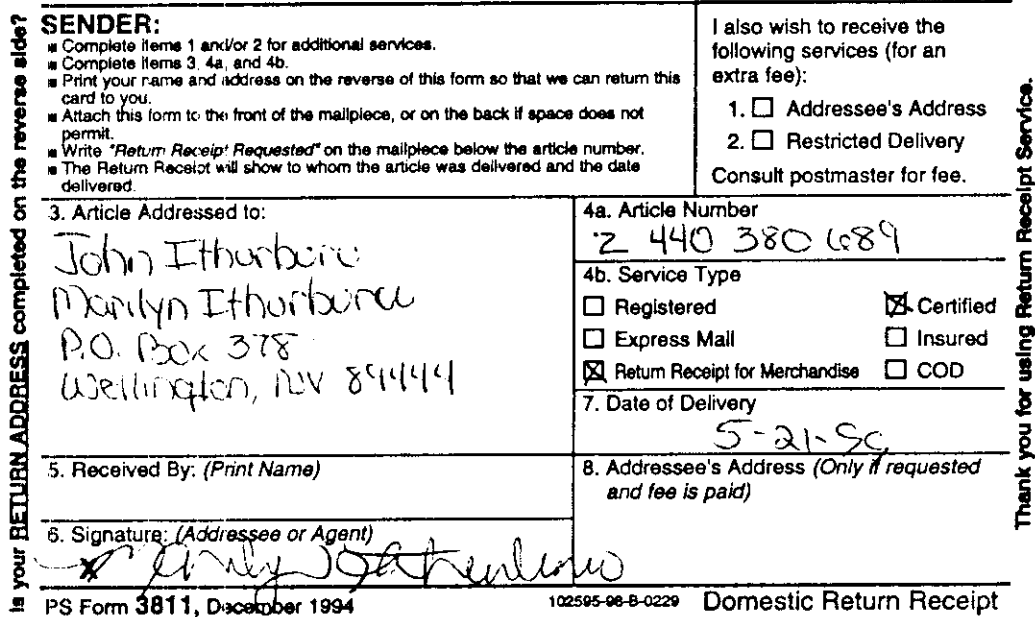 Is your RETURN ADDRESS completed on the reverse side?
SENDER:
■ Complete items 1 and/or 2 for additional services.
■ Complete items 3, 4a, and 4b.
■ Print your name and address on the reverse of this form so that we can return this
card to you.
■ Attach this form to the front of the mailpiece, or on the back if space does not
permit.
■ Write "Return Receipt Requested" on the mailpiece below the article number.
■ The Return Receipt will show to whom the article was delivered and the date
delivered.
I also wish to receive the
following services (for an
extra fee):
1. ☐ Addressee's Address
2. ☐ Restricted Delivery
Consult postmaster for fee.
3. Article Addressed to:
John Ithurburu
Marilyn Ithurburu
P.O. Box 378
Wellington, NV 89444
4a. Article Number
Z 440 380 689
4b. Service Type
☐ Registered ☒ Certified
☐ Express Mail ☐ Insured
☒ Return Receipt for Merchandise ☐ COD
7. Date of Delivery
5-21-
5. Received By: (Print Name)
8. Addressee's Address (Only if requested
and fee is paid)
6. Signature: (Addressee or Agent)
X
PS Form 3811, December 1994
102595-98-B-0229 Domestic Return Receipt
Thank you for using Return Receipt Service.